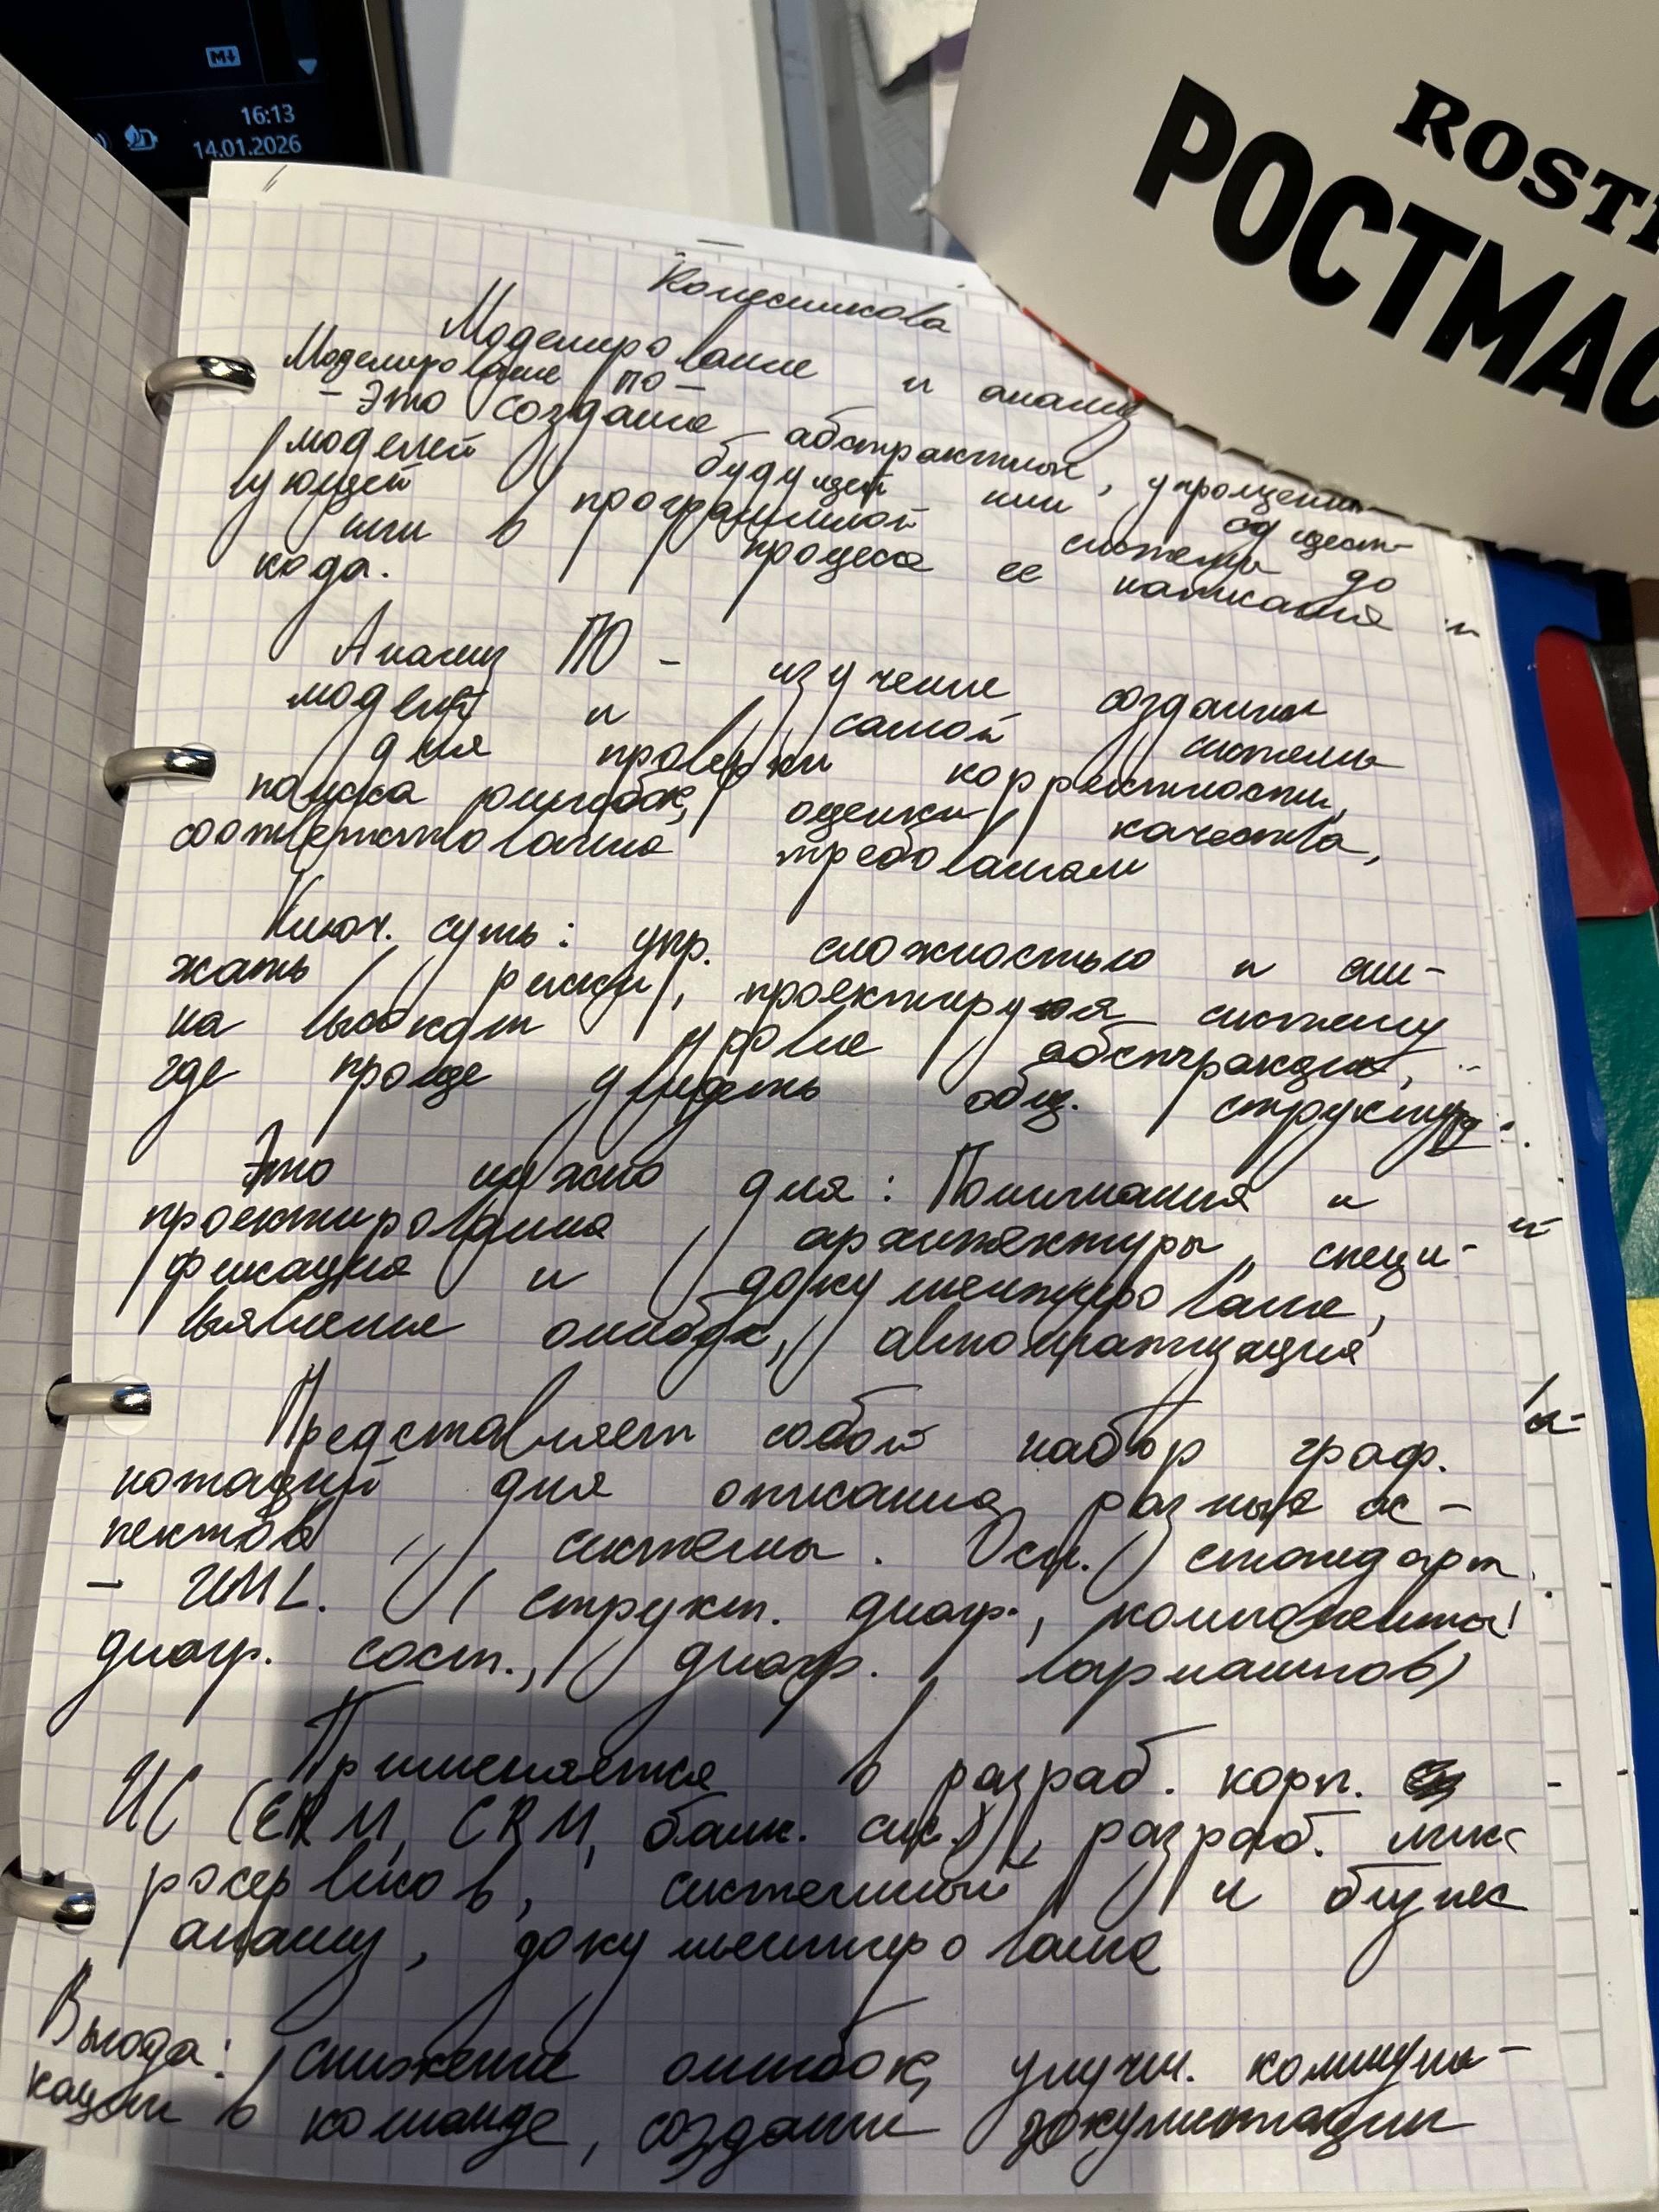 16:13
14.01.2026
ROST
РОСТМАС
Колесникова
Моделирование и анализ
Моделирование ПО -
- это создание абстрактных, упрощенны
моделей будущей или сущест-
вующей программной системы до
или в процессе ее написания
кода.
Анализ ПО - изучение созданных
моделей и самой системы
для проверки корректности,
поиска ошибок, оценки качества,
соответствования требованиям
Ключ. суть: упр. сложностью и сни-
жать риски, проектируя систему
на высоком уровне абстракции,
где проще увидеть общ. структуру
Это нужно для: Понимания и
проектирования архитектуры, специ-
фикация и документирование,
выявление ошибок, автоматизация
Представляет собой набор граф.
нотаций для описания разных ас-
пектов системы. Осн. стандарт
- UML. (структ. диагр., компоненты
диагр. сост., диагр. вариантов)
Применяется в разраб. корп.
ИС (ERM, CRM, банк. сис.), разраб. мик
росервисов, системный и бизнес
анализ, документирование
Выгода: снижение ошибок, улучш. коммуни-
кации в команде, создание документации